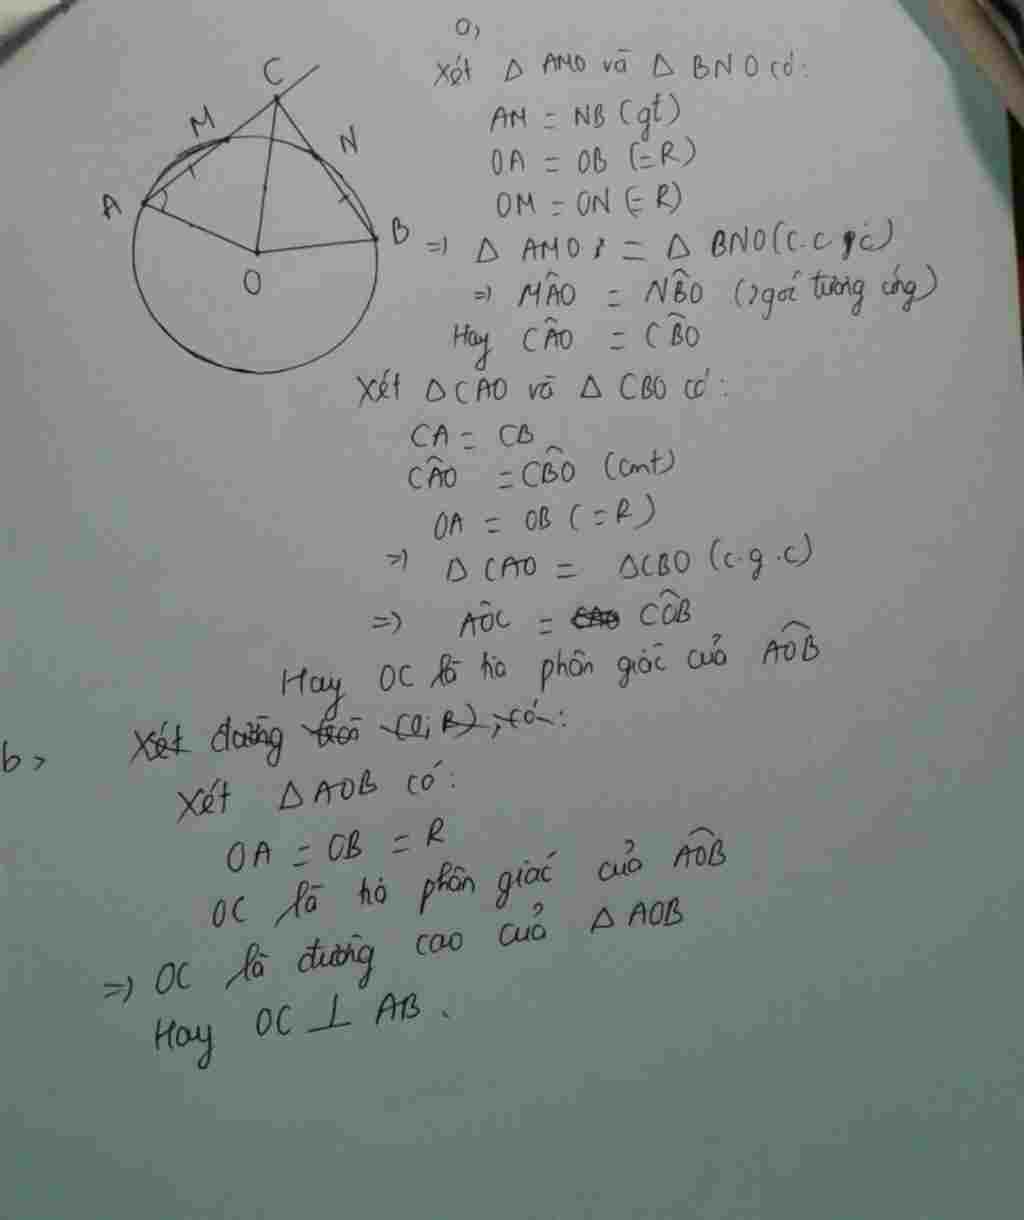 a,
Xét Δ AMO và Δ BNO có:
AM = NB (gt)
OA = OB (=R)
OM = ON (=R)
=> Δ AMO = Δ BNO (c.c.c)
=> MÂO = NB̂O (2 góc tương ứng)
Hay CÂO = CB̂O
Xét ΔCAO và Δ CBO có:
CA = CB
CÂO = CB̂O (cmt)
OA = OB (=R)
=> Δ CAO = ΔCBO (c.g.c)
=> AÔC = CÔB
Hay OC là tia phân giác của AÔB
b> Xét đường tròn (O; R), có:
Xét Δ AOB có:
OA = OB = R
OC là tia phân giác của AÔB
=> OC là đường cao của Δ AOB
Hay OC ⊥ AB.
C
M
N
A
B
O